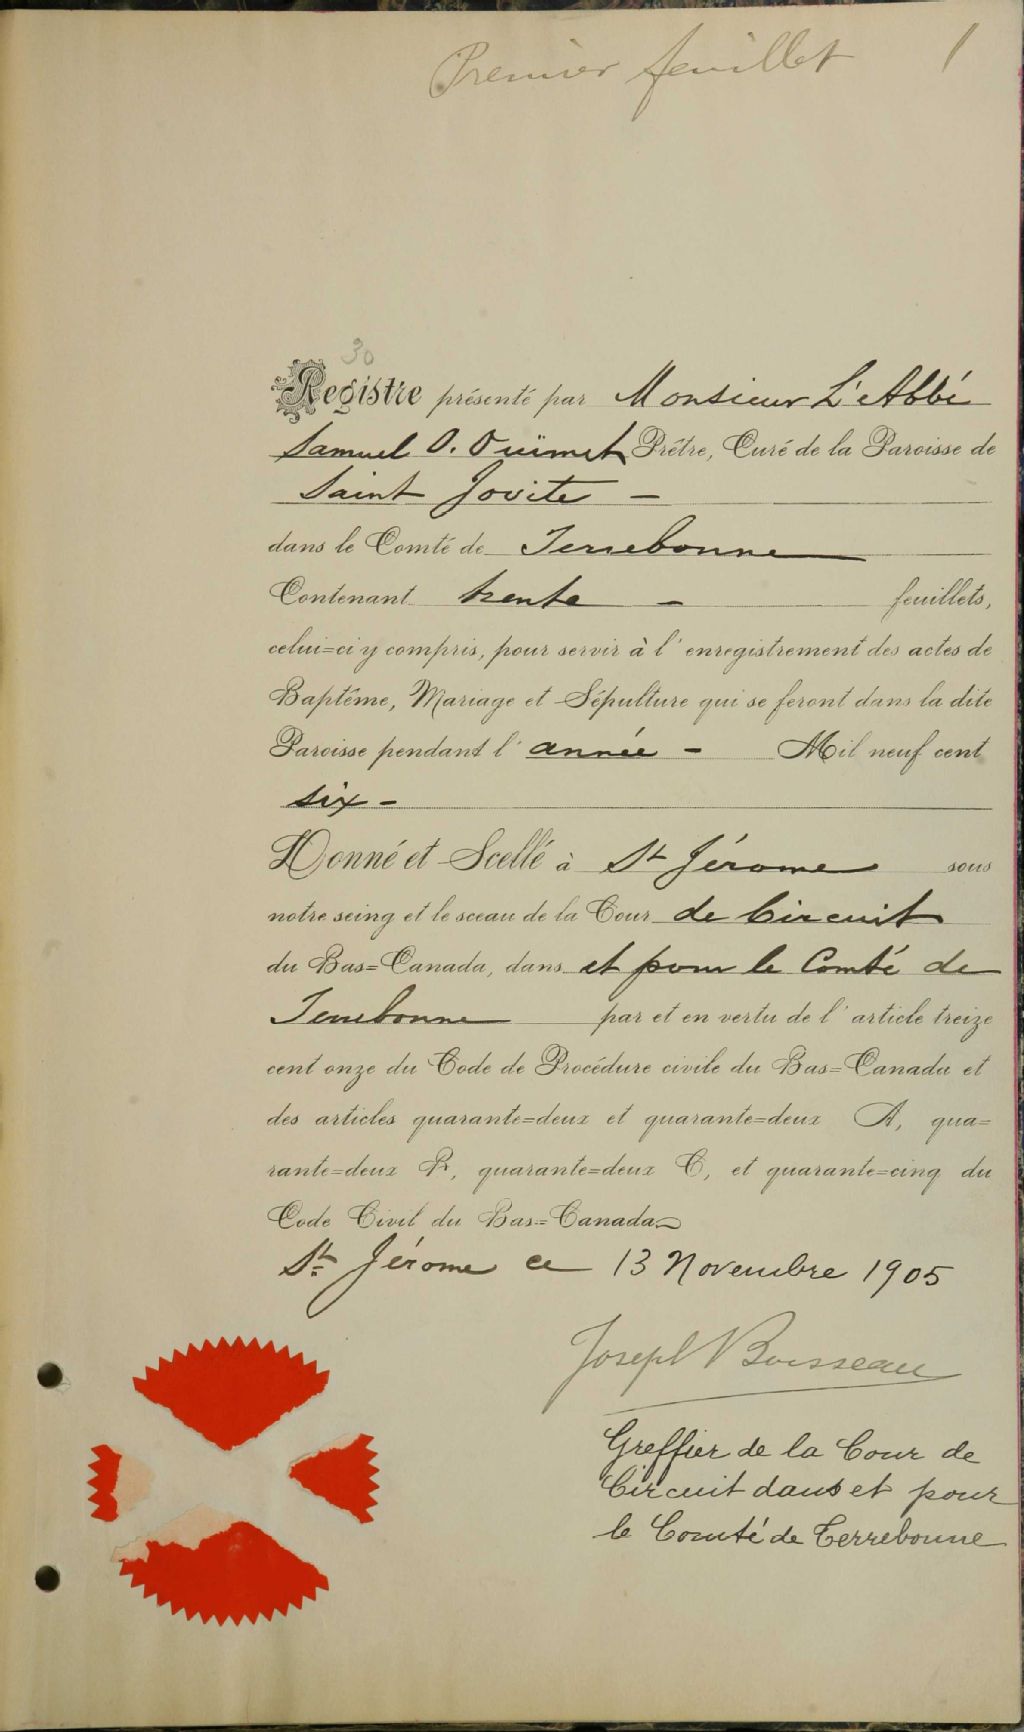 Premier feuillet 1
30
Registre présenté par Monsieur L'Abbé
Samuel O. Ouimet Prêtre, Curé de la Paroisse de
Saint Jovite –
dans le Comté de Terrebonne
Contenant trente – feuillets,
celui=ci y compris, pour servir à l'enregistrement des actes de
Baptême, Mariage et Sépulture qui se feront dans la dite
Paroisse pendant l'année – Mil neuf cent
six –
Donné et Scellé à St Jérome sous
notre seing et le sceau de la Cour de Circuit
du Bas=Canada, dans et pour le Comté de
Terrebonne par et en vertu de l'article treize
cent onze du Code de Procédure civile du Bas=Canada et
des articles quarante=deux et quarante=deux A, qua=
rante=deux B, quarante=deux C, et quarante=cinq du
Code Civil du Bas=Canada
St Jérome ce 13 Novembre 1905
Joseph Boisseau
Greffier de la Cour de
Circuit dans et pour
le Comté de Terrebonne